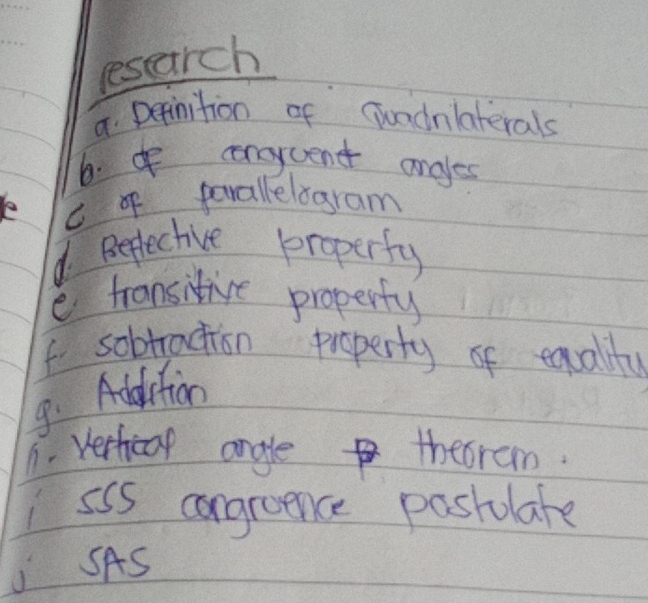 research
a. Definition of Quadrilaterals
b. of congruent angles
c of parallelogram
d. Reflective property
e. transitive property
f. sobtraction property of equality
g. Addition
h. Vertical angle theorem.
i SSS congruence postulate
j SAS